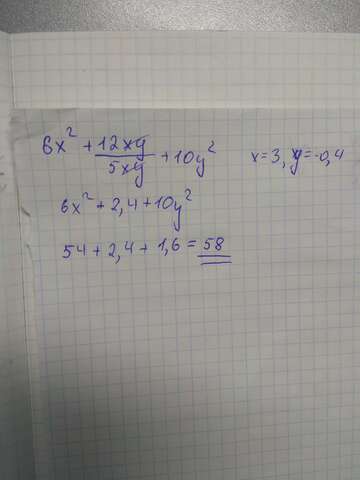 6x² + 12xy/5xy + 10y² x=3, y=-0,4
6x² + 2,4 + 10y²
54 + 2,4 + 1,6 = 58